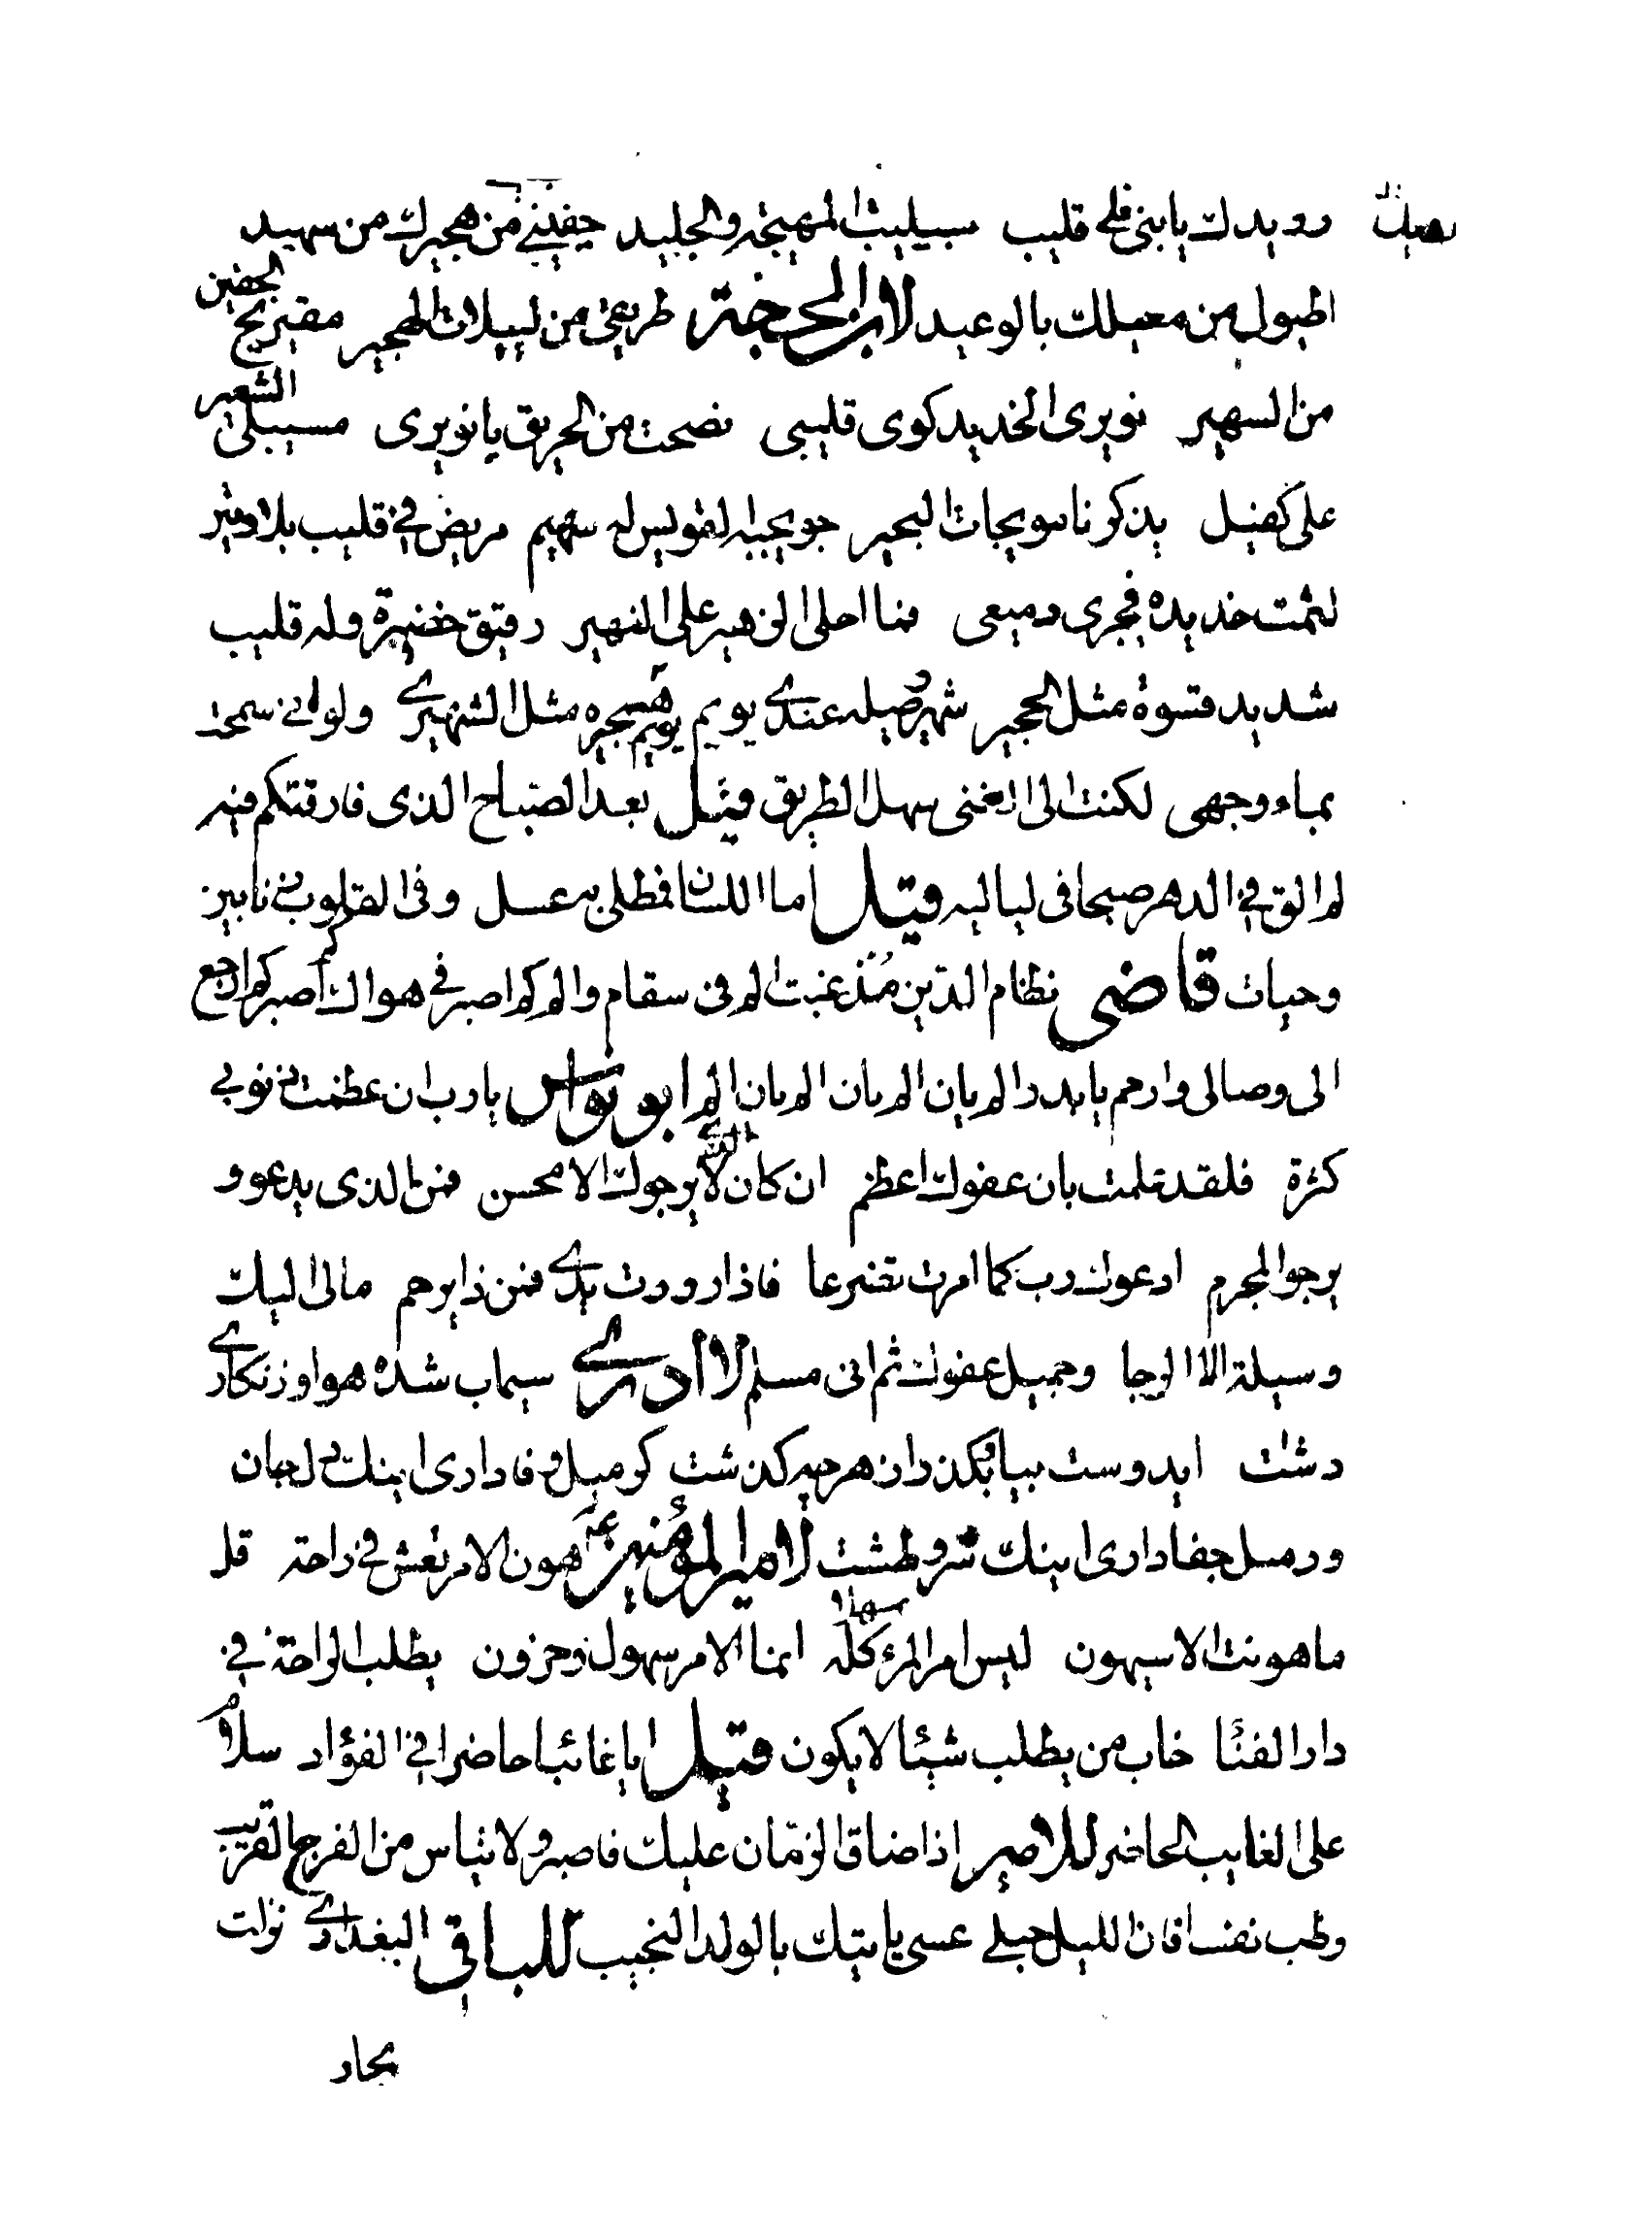 رويدك يا بني فلي قليب سبيليت المهيجة والجليد جفيني من هجيرك من سهيد
اطيول من معيلك بالوعيد لابن الحجة طريفي من لييلات الهجير مقيريح الجفين
من السهير نويرى الخديد كوى قليبي فصحت من الحريق يا نويرى مسيبلي الشعير
على كفيل يذكرنا سويجات البحير جويجبه لقويس له سهيم مريض في قليب بلا وتير
لثمت خديده فجرى دميعى فما احلى الزهير على النهير رقيق خضيرة وله قليب
شديد قسوة مثل الحجير شهير وصيله عندي يويم يويم هجيره مثل الشهيري ولو اني سمحت
بماء وجهى لكنت الى الغنى سهل الطريق قيل بعد الصباح الذى فارقتكم فيه
لم الق في الدهر صبحا فى لياليه قيل اما اللسان فمطلى به عسل وفى القلوب زنابير
وحيات قاضى نظام الدين مذ غبت لم فى سقام والم كم اصبر فى هواك كم اصبر كم ارجع
الى وصالى وارحم يا بدر الم يان الم يان الم يان الم ابو نواس يا رب ان عظمت ذنوبي
كثرة فلقد علمت بان عفوك اعظم ان كان لا يرجوك الا محسن فمن الذى يدعو و
يرجو المجرم ادعوك رب كما امرت تضرعا فاذا رددت يدي فمن ذا يرحم مالى اليك
وسيلة الا الرجا وجميل عفوك ثم انى مسلم لا ادري سيماب شده هوا و زنكاري
دشت ايدوست بيا وبكذر از هرچه كذشت كر ميل وفا دارى اينك دل وجان
ور ميل جفا دارى اينك سر وطشت لامير المؤمنين هون الامر تعش في راحة قل
ما هونت الا سيهون ليس امر المرء كله سهلا انما الامر سهول وحزون يطلب الراحة في
دار الفنا خاب من يطلب شيئا لا يكون قيل ايا غائبا حاضرا في الفؤاد سلام
على الغايب الحاضر للامير اذا ضاق الزمان عليك فاصبر ولا تيأس من الفرج القريب
وطب نفسا فان الليل حبلى عسى ياتيك بالولد النجيب للباقى البغدادي نزلت
بجار